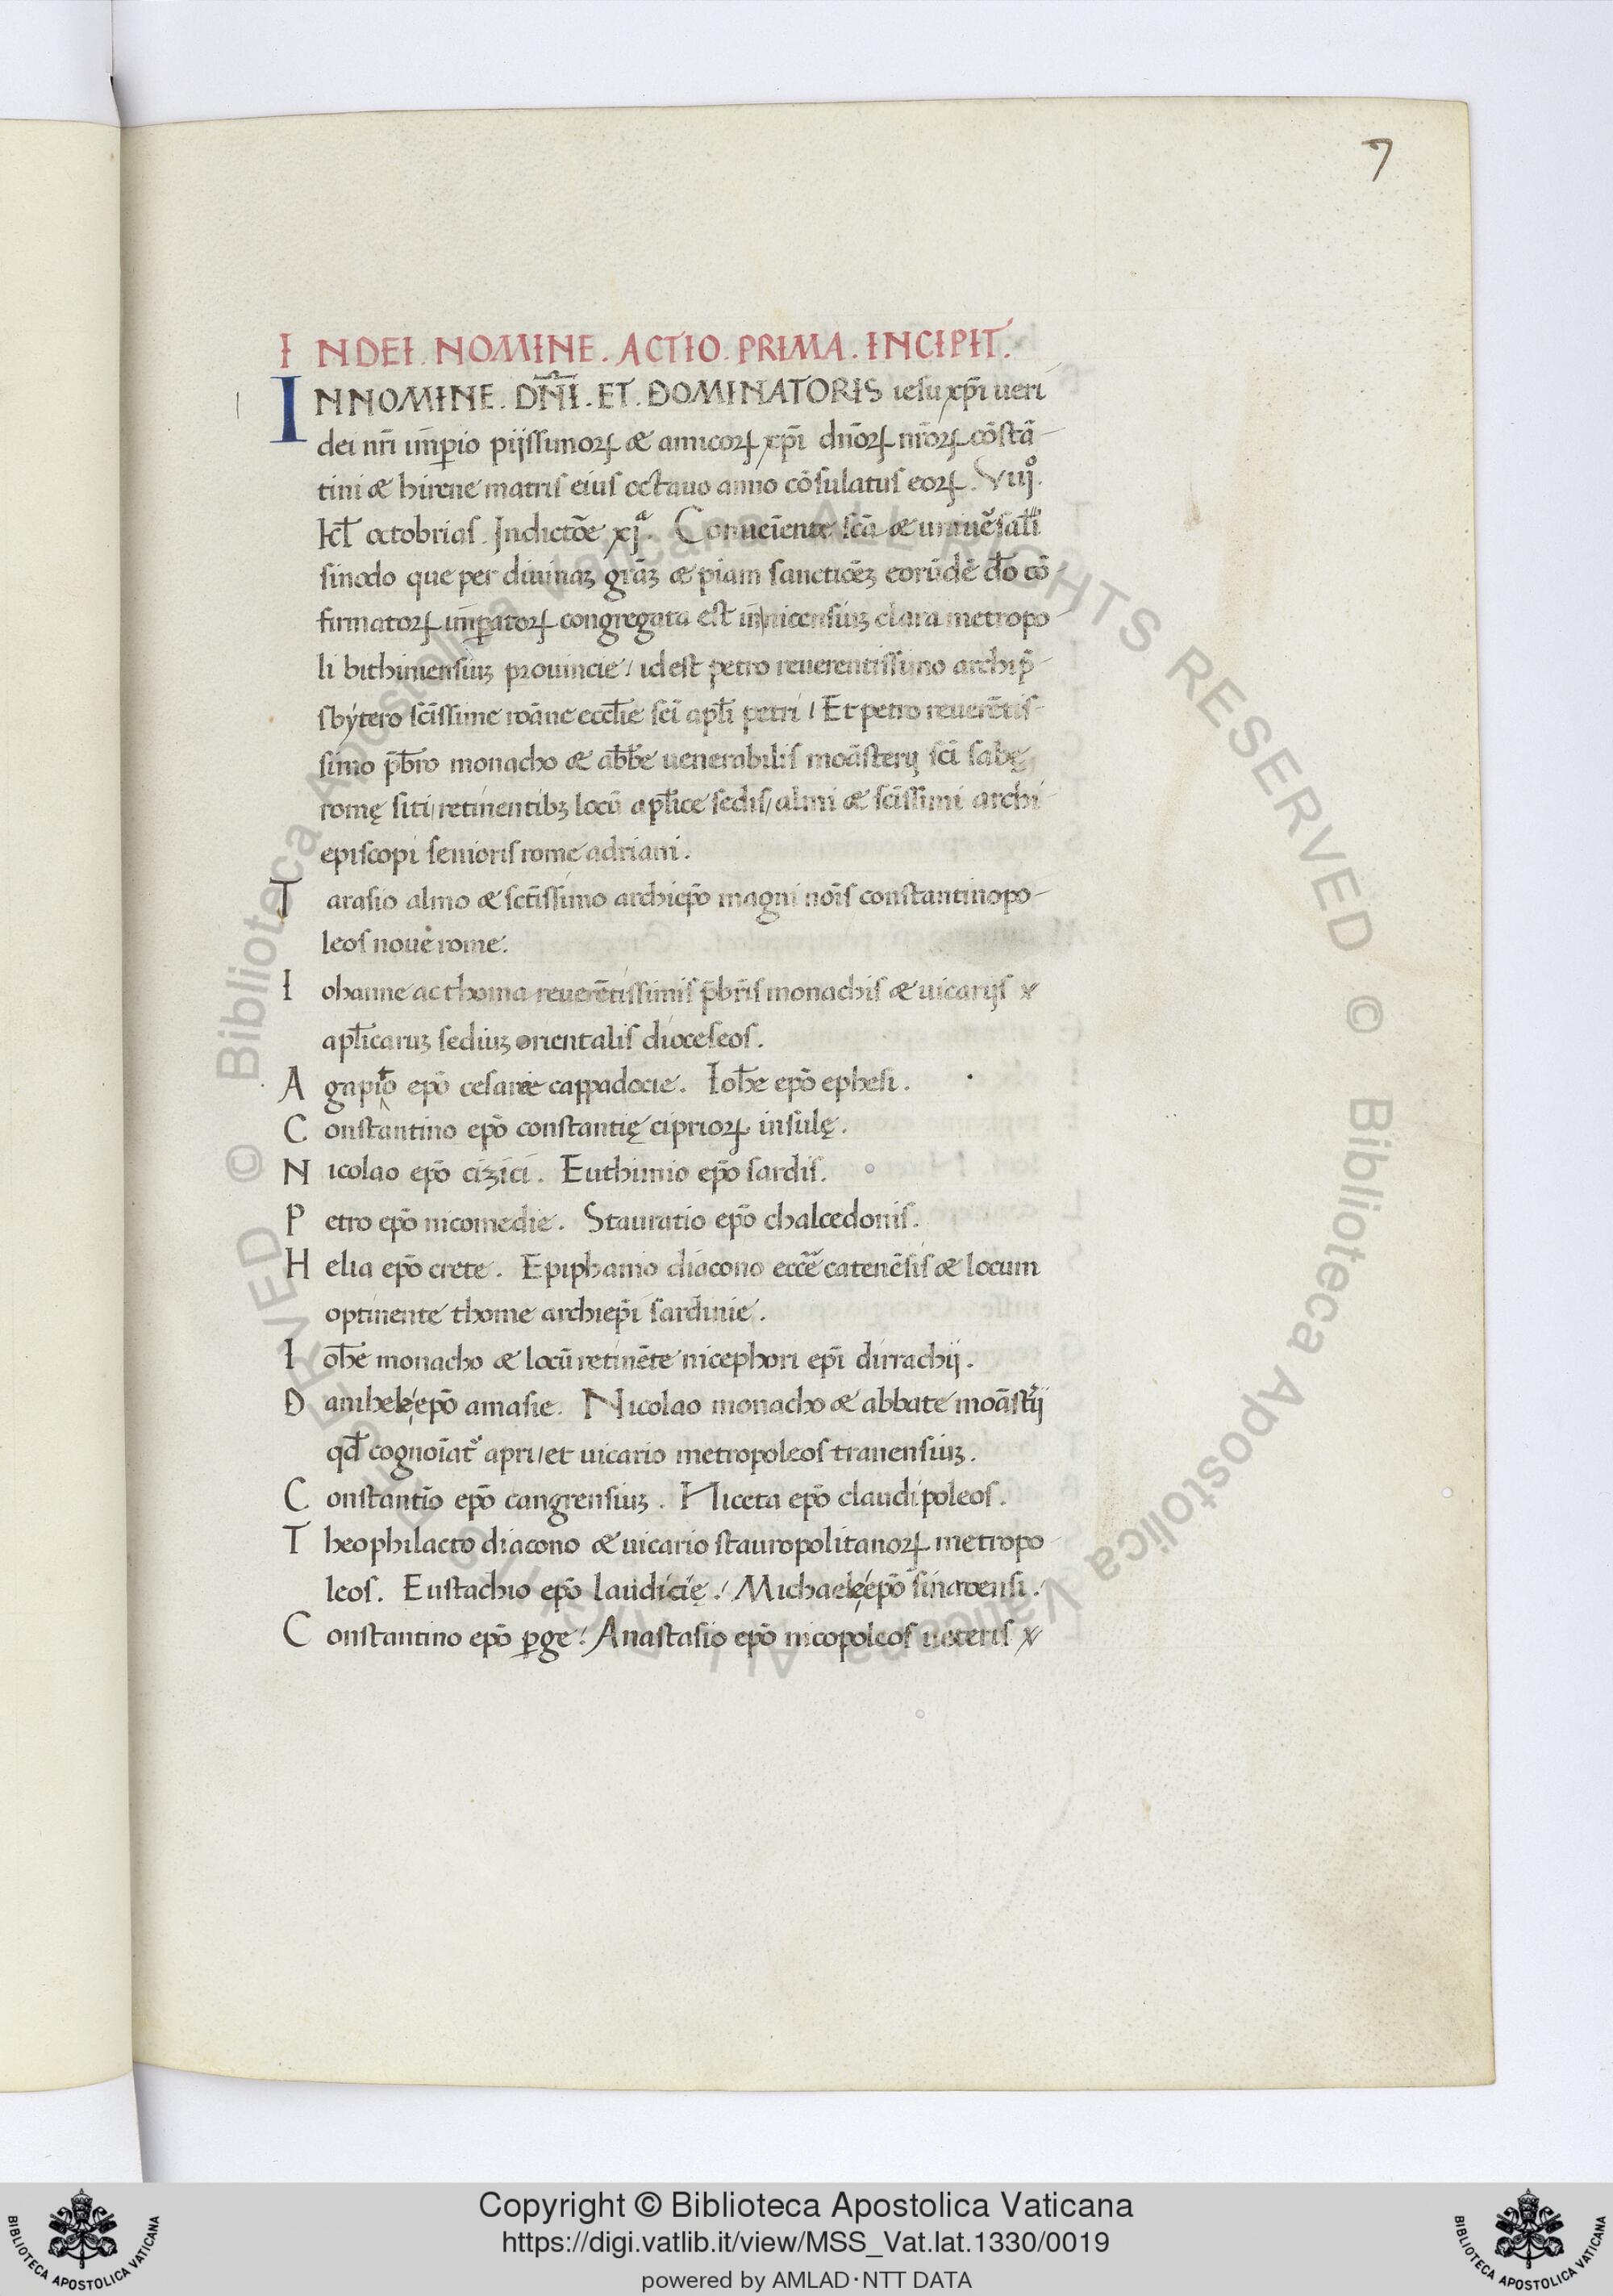 7
IN DEI. NOMINE. ACTIO. PRIMA. INCIPIT.
IN NOMINE. DN̄I. ET. DOMINATORIS iesu xp̄i ueri
dei nr̄i imꝑio pijssimoꝝ & amicoꝝ xp̄i dn̄oꝝ nr̄oꝝ cōstā-
tini & hirene matris eius octauo anno cōsulatus eoꝝ. Viijº.
kl̄ octobrias. Indictōe xjª. Conueīente scā & uniuēsali
sinodo que per diuinaꝫ grāꝫ & piam sanctiōeꝫ eorūdē dō cō-
firmatoꝝ imꝑatoꝝ congregata est in nicensiuꝫ clara metropo-
li bithiniensiuꝫ prouincie / idest petro reuerentissimo archip̄-
sbytero scīssime roāne eccl̄ie scī apl̄i petri / Et petro reuerētis-
simo p̄bro monacho & abb̄e uenerabilis moāsterij scī sabę
romę siti / retinentibꝫ locū apl̄ice sedis / almi & scīssimi archi-
episcopi senioris rome adriani.
Tarasio almo & sctīssimo archiep̄o magni noīs constantinopo-
leos noue rome.
Iohanne ac thoma reuerētissimis p̄bris monachis & uicarijs
apl̄icaruꝫ sediuꝫ orientalis dioceseos.
Agapito ep̄o cesarie cappadocie. Ioh̄e ep̄o ephesi.
Constantino ep̄o constantię ciprioꝝ insulę.
Nicolao ep̄o cizici. Euthimio ep̄o sardis.
Petro ep̄o nicomedie. Stauratio ep̄o chalcedonis.
Helia ep̄o crete. Epiphanio diacono eccē catenēsis & locum
optinente thome archiep̄i sardinie.
Ioh̄e monacho & locū retinēte nicephori ep̄i dirrachij.
Danihele ep̄o amasie. Nicolao monacho & abbate moāstij
qd̄ cognoīat᷑ apri / et uicario metropoleos tranensiuꝫ.
Constantīo ep̄o cangrensiuꝫ. Niceta ep̄o claudipoleos.
Theophilacto diacono & uicario stauropolitanoꝝ metropo-
leos. Eustachio ep̄o laudicię. / Michaele ep̄o
Constantino ep̄o ꝑge. / Anastasio ep̄o nicopoleos ueteris
© Biblioteca Apostolica Vaticana ALL RIGHTS RESERVED © Biblioteca Apostolica Vaticana ALL RIGHTS RESERVED
Copyright © Biblioteca Apostolica Vaticana
https://digi.vatlib.it/view/MSS_Vat.lat.1330/0019
powered by AMLAD・NTT DATA
BIBLIOTECA APOSTOLICA VATICANA
BIBLIOTECA APOSTOLICA VATICANA